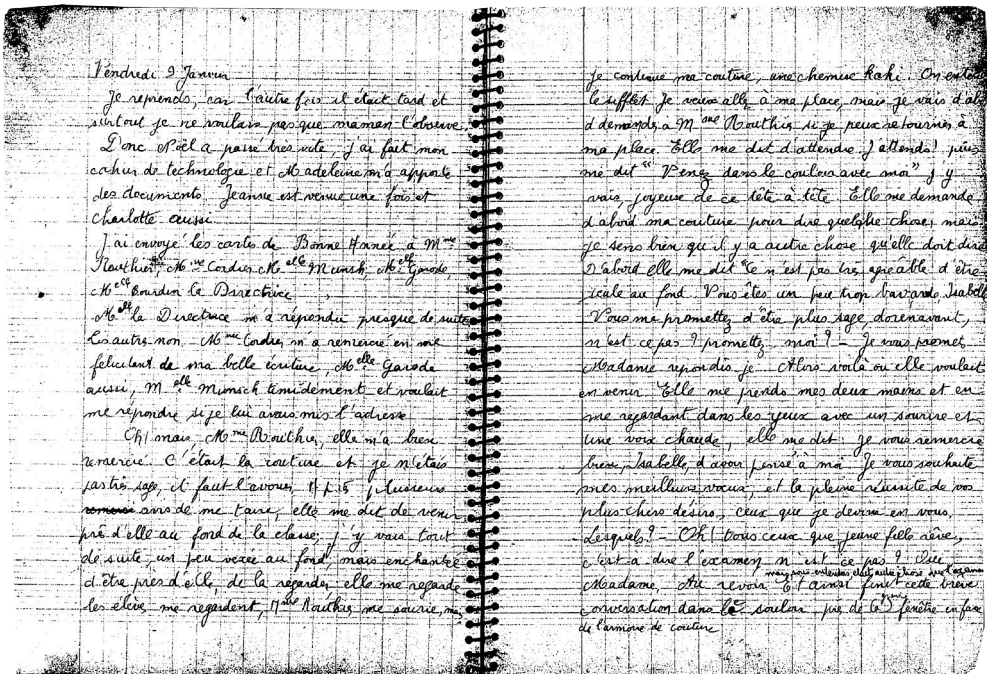 Vendredi 9 Janvier
Je reprends, car l'autre fois il était tard et
surtout je ne voulais pas que maman l'observe.
Donc Noël a passé très vite j'ai fait mon
cahier de technologie et Madeleine m'a apporté
des documents. Jeanne est venue une fois et
Charlotte aussi
J'ai envoyé les cartes de Bonne Année à Mme
Routhier, Mme Cordier, Melle Munsch, Melle Garode,
Melle Bourdin la Directrice
Melle la Directrice m'a répondu presque de suite
Les autres non. Mme Cordier m'a remercié en me
félicitant de ma belle écriture, Melle Garode
aussi, Melle Munsch timidement et voulait
me répondre si je lui avais mis l'adresse
Oh! mais Mme Routhier, elle m'a bien
remercié. C'était la couture et je n'étais
pas très sage, il faut l'avouer, plusieurs
avis de me taire, elle me dit de venir
près d'elle au fond de la classe, j'y vais tout
de suite, un peu vexée au fond, mais enchantée
d'être près d'elle, de la regarder, elle me regarde
les élèves me regardent, Mme Routhier me sourie, moi
je continue ma couture, une chemise kaki. On entend
le sifflet. Je veux aller à ma place, mais je vais d'abord
demander à Mme Routhier si je peux retourner à
ma place. Elle me dit d'attendre. J'attends! puis
me dit "Venez dans le couloir avec moi" j'y
vais, joyeuse de ce tête à tête. Elle me demande
d'abord ma couture pour dire quelque chose, mais
je sens bien qu'il y a autre chose qu'elle doit dire
D'abord elle me dit "Ce n'est pas très agréable d'être
seule au fond. Vous êtes un peu trop bavarde Isabelle
Vous me promettez d'être plus sage, dorénavant,
n'est ce pas? promettez moi? - Je vous promet,
Madame répondis je. Alors voilà où elle voulait
en venir. Elle me prends mes deux mains et en
me regardant dans les yeux avec un sourire et
une voix chaude, elle me dit: je vous remercie
bien, Isabelle, d'avoir pensé à moi. Je vous souhaite
mes meilleurs vœux, et la pleine réussite de vos
plus chers désirs, ceux que je devine en vous,
Lesquels? - Oh! tous ceux que jeune fille rêve,
c'est à dire l'examen n'est ce pas? Oui
Madame, Au revoir. Et ainsi finit cette brève
conversation dans le couloir près de la fenêtre en face
de l'armoire de couture